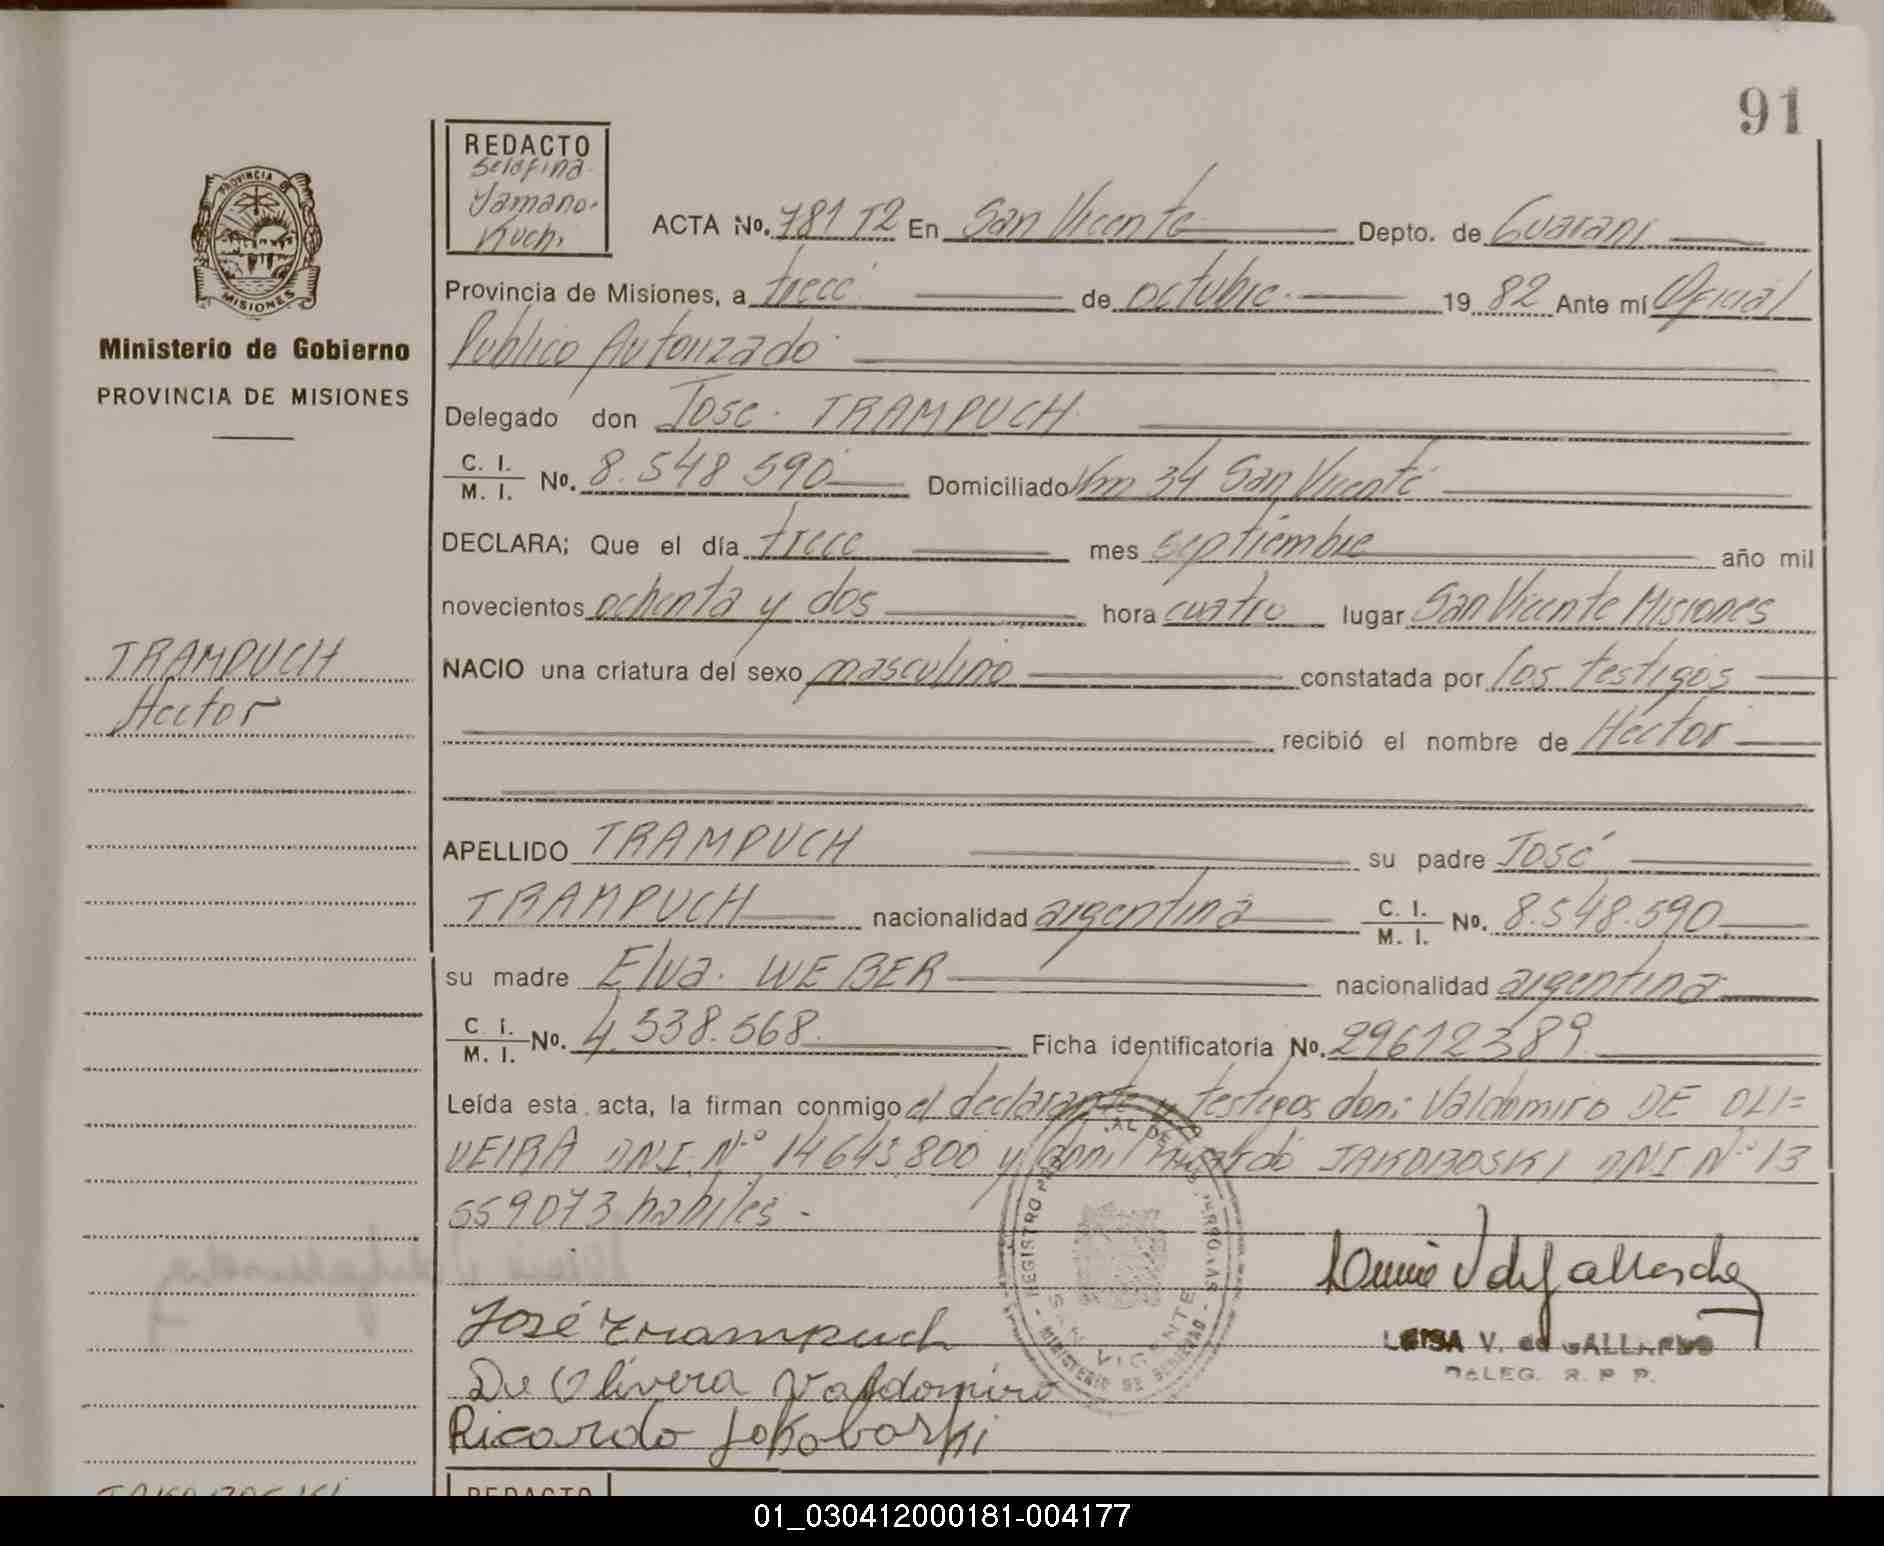 91
REDACTO
Serafina
Yamano-
Kuchi
PROVINCIA DE
MISIONES
Ministerio de Gobierno
PROVINCIA DE MISIONES
ACTA No. 781 T2 En San Vicente Depto. de Guaraní
Provincia de Misiones, a trece de octubre 19 82 Ante mí Oficial
Publico Autorizado
Delegado don José TRAMPUCH
C. I. / M. I. No. 8.548 590 Domiciliado Km 34 San Vicente
DECLARA; Que el día trece mes septiembre año mil
novecientos ochenta y dos hora cuatro lugar San Vicente Misiones
TRAMPUCH
Hector
NACIO una criatura del sexo masculino constatada por los testigos
recibió el nombre de Hector
APELLIDO TRAMPUCH su padre José
TRAMPUCH nacionalidad argentina C. I. / M. I. No. 8.548.590
su madre Elva WEBER nacionalidad argentina
C. I. / M. I. No. 4.538.568 Ficha identificatoria No. 29612389
Leída esta acta, la firman conmigo el declarante y testigos don: Valdomiro DE OLI=
VEIRA DNI. Nº 14643.800 y don: Ricardo JAKOBOSKI DNI Nº 13
559073 habiles -
José Trampuch
De Olivera Valdomiro
Ricardo Jokoboski
SAN VICENTE
MINISTERIO DE GOBIERNO
LEISA V. de GALLARDO
DELEG. R. P. P.
REDACTO
01_030412000181-004177